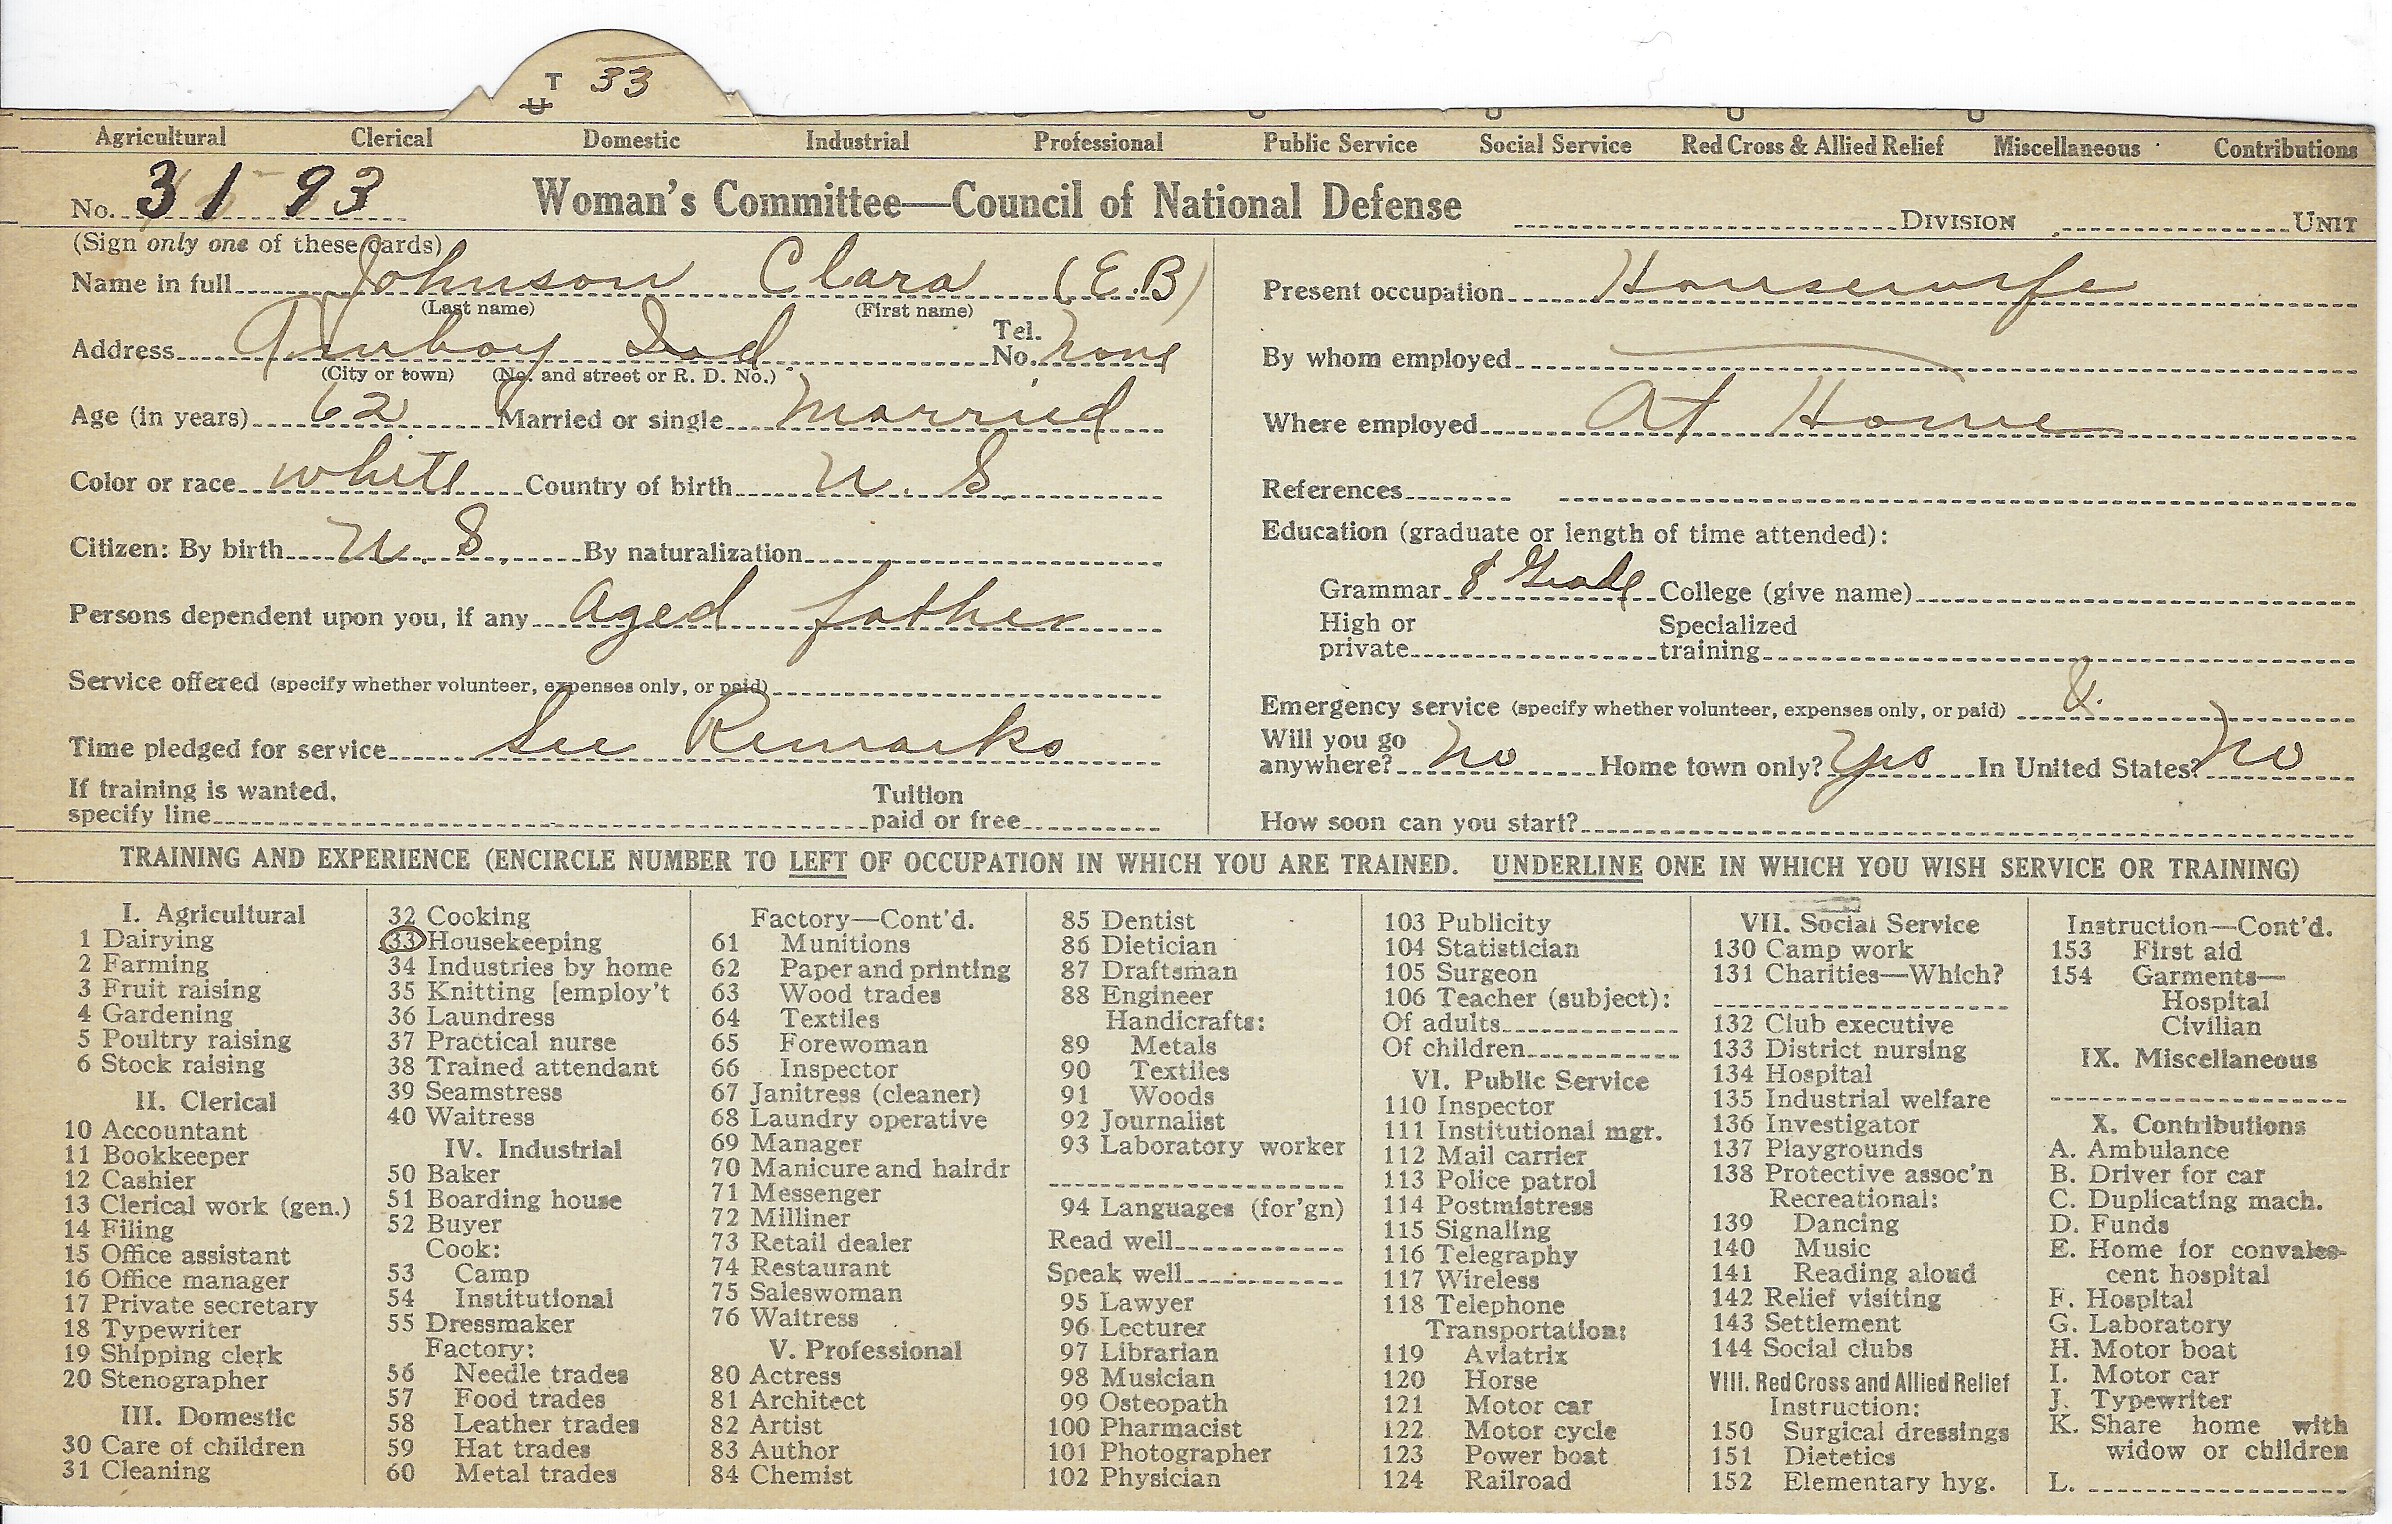 T 33
U
Agricultural Clerical Domestic Industrial Professional Public Service Social Service Red Cross & Allied Relief Miscellaneous Contributions
No. 3193 Woman's Committee—Council of National Defense DIVISION UNIT
(Sign only one of these cards)
Name in full Johnson Clara (E.B)
(Last name) (First name)
Address Amboy Ind Tel. No. none
(City or town) (No. and street or R. D. No.)
Age (in years) 62 Married or single Married
Color or race white Country of birth U. S.
Citizen: By birth U. S. By naturalization
Persons dependent upon you, if any Aged father
Service offered (specify whether volunteer, expenses only, or paid)
Time pledged for service See Remarks
If training is wanted, specify line Tuition paid or free
Present occupation Housewife
By whom employed
Where employed At Home
References
Education (graduate or length of time attended):
Grammar 8 Grade College (give name)
High or private Specialized training
Emergency service (specify whether volunteer, expenses only, or paid)
Will you go anywhere? No Home town only? Yes In United States? No
How soon can you start?
TRAINING AND EXPERIENCE (ENCIRCLE NUMBER TO LEFT OF OCCUPATION IN WHICH YOU ARE TRAINED. UNDERLINE ONE IN WHICH YOU WISH SERVICE OR TRAINING)
I. Agricultural
1 Dairying
2 Farming
3 Fruit raising
4 Gardening
5 Poultry raising
6 Stock raising
II. Clerical
10 Accountant
11 Bookkeeper
12 Cashier
13 Clerical work (gen.)
14 Filing
15 Office assistant
16 Office manager
17 Private secretary
18 Typewriter
19 Shipping clerk
20 Stenographer
III. Domestic
30 Care of children
31 Cleaning
32 Cooking
33 Housekeeping
34 Industries by home
35 Knitting [employ't
36 Laundress
37 Practical nurse
38 Trained attendant
39 Seamstress
40 Waitress
IV. Industrial
50 Baker
51 Boarding house
52 Buyer
Cook:
53 Camp
54 Institutional
55 Dressmaker
Factory:
56 Needle trades
57 Food trades
58 Leather trades
59 Hat trades
60 Metal trades
Factory—Cont'd.
61 Munitions
62 Paper and printing
63 Wood trades
64 Textiles
65 Forewoman
66 Inspector
67 Janitress (cleaner)
68 Laundry operative
69 Manager
70 Manicure and hairdr
71 Messenger
72 Milliner
73 Retail dealer
74 Restaurant
75 Saleswoman
76 Waitress
V. Professional
80 Actress
81 Architect
82 Artist
83 Author
84 Chemist
85 Dentist
86 Dietician
87 Draftsman
88 Engineer
Handicrafts:
89 Metals
90 Textiles
91 Woods
92 Journalist
93 Laboratory worker
94 Languages (for'gn)
Read well
Speak well
95 Lawyer
96 Lecturer
97 Librarian
98 Musician
99 Osteopath
100 Pharmacist
101 Photographer
102 Physician
103 Publicity
104 Statistician
105 Surgeon
106 Teacher (subject):
Of adults
Of children
VI. Public Service
110 Inspector
111 Institutional mgr.
112 Mail carrier
113 Police patrol
114 Postmistress
115 Signaling
116 Telegraphy
117 Wireless
118 Telephone
Transportation:
119 Aviatrix
120 Horse
121 Motor car
122 Motor cycle
123 Power boat
124 Railroad
VII. Social Service
130 Camp work
131 Charities—Which?
132 Club executive
133 District nursing
134 Hospital
135 Industrial welfare
136 Investigator
137 Playgrounds
138 Protective assoc'n
Recreational:
139 Dancing
140 Music
141 Reading aloud
142 Relief visiting
143 Settlement
144 Social clubs
VIII. Red Cross and Allied Relief
Instruction:
150 Surgical dressings
151 Dietetics
152 Elementary hyg.
Instruction—Cont'd.
153 First aid
154 Garments—
Hospital
Civilian
IX. Miscellaneous
X. Contributions
A. Ambulance
B. Driver for car
C. Duplicating mach.
D. Funds
E. Home for convales-
cent hospital
F. Hospital
G. Laboratory
H. Motor boat
I. Motor car
J. Typewriter
K. Share home with
widow or children
L.